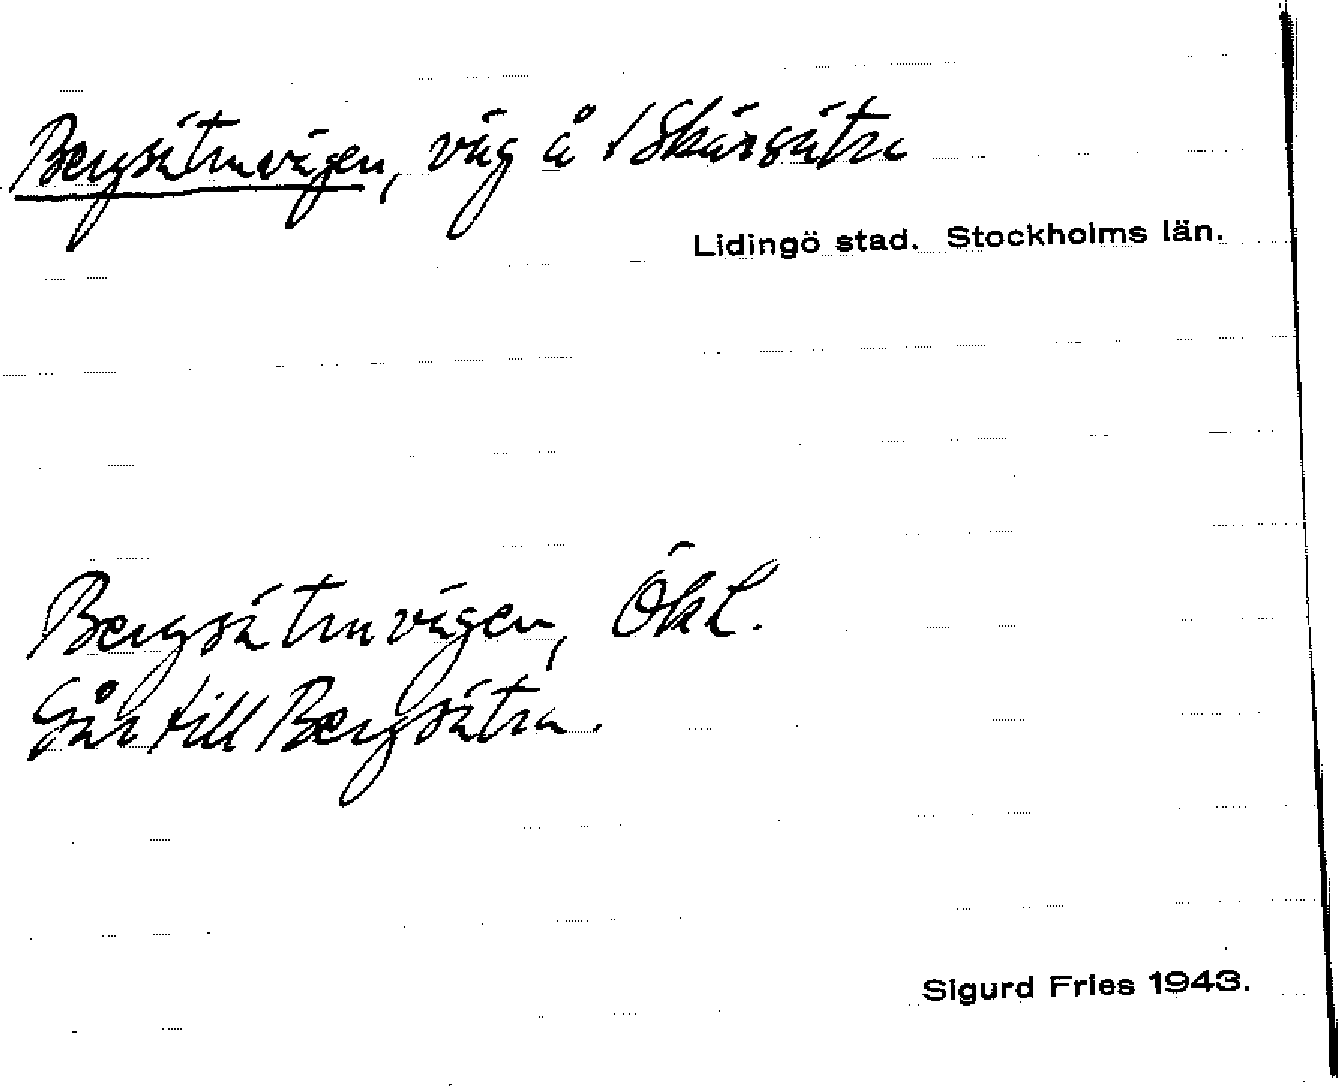 Bergsätravägen, väg å /Skärsätra
Lidingö stad. Stockholms län.
Bergsätravägen, ÖkL.
Går till Bergsätra.
Sigurd Fries 1943.